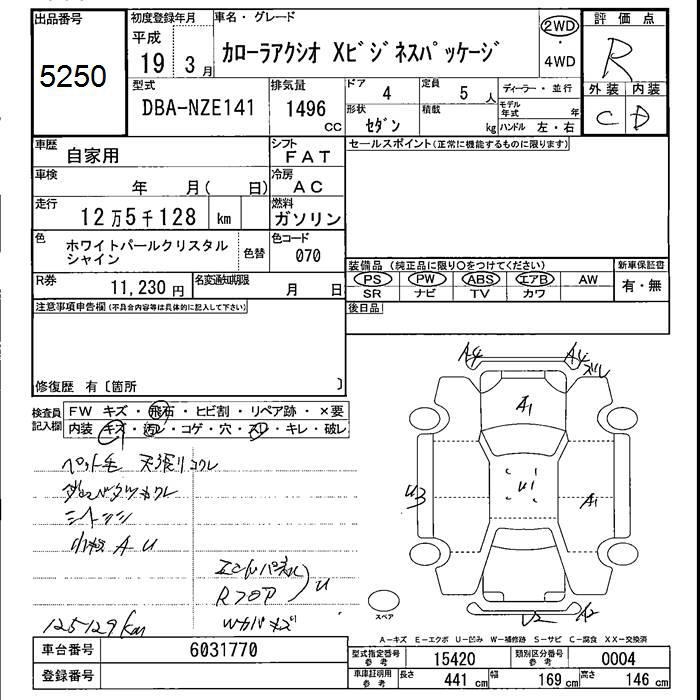 出品番号
5250
初度登録年月
平成
19 3月
車名・グレード
カローラアクシオ Xビジネスパッケージ
2WD
・
4WD
評価点
R
外装 内装
C D
型式
DBA-NZE141
排気量
1496
CC
ドア 4
定員 5 人
形状 セダン
積載 kg
ディーラー・並行
モデル年式 年
ハンドル 左・右
車歴 自家用
シフト FAT
車検 年 月( 日)
冷房 AC
走行 12万5千128 km
燃料 ガソリン
色 ホワイトパールクリスタルシャイン
色替
色コード 070
R券 11,230円
名変通知期限 月 日
セールスポイント(正常に機能するものに限ります)
装備品 (純正品に限り○をつけてください)
新車保証書
PS PW ABS エアB AW
SR ナビ TV カワ
有・無
後日品
注意事項申告欄(不具合内容等は具体的に記入して下さい)
修復歴 有〔箇所 〕
検査員記入欄
FW キズ・飛石・ヒビ割・リペア跡・×要
内装 キズ・汚レ・コゲ・穴・スレ・キレ・破レ
ペット毛 天張りヨゴレ
シートシミ
小キズ A U
エンドパネル
Rフロア
U
125129km
A4
A4
ズレ
A1
U1
U3
A1
U2
A2
スペア
A-キズ E-エクボ U-凹み W-補修跡 S-サビ C-腐食 XX-交換済
車台番号 6031770
登録番号
型式指定番号参考 15420
類別区分番号参考 0004
車庫証明用参考
長さ 441 cm
幅 169 cm
高さ 146 cm